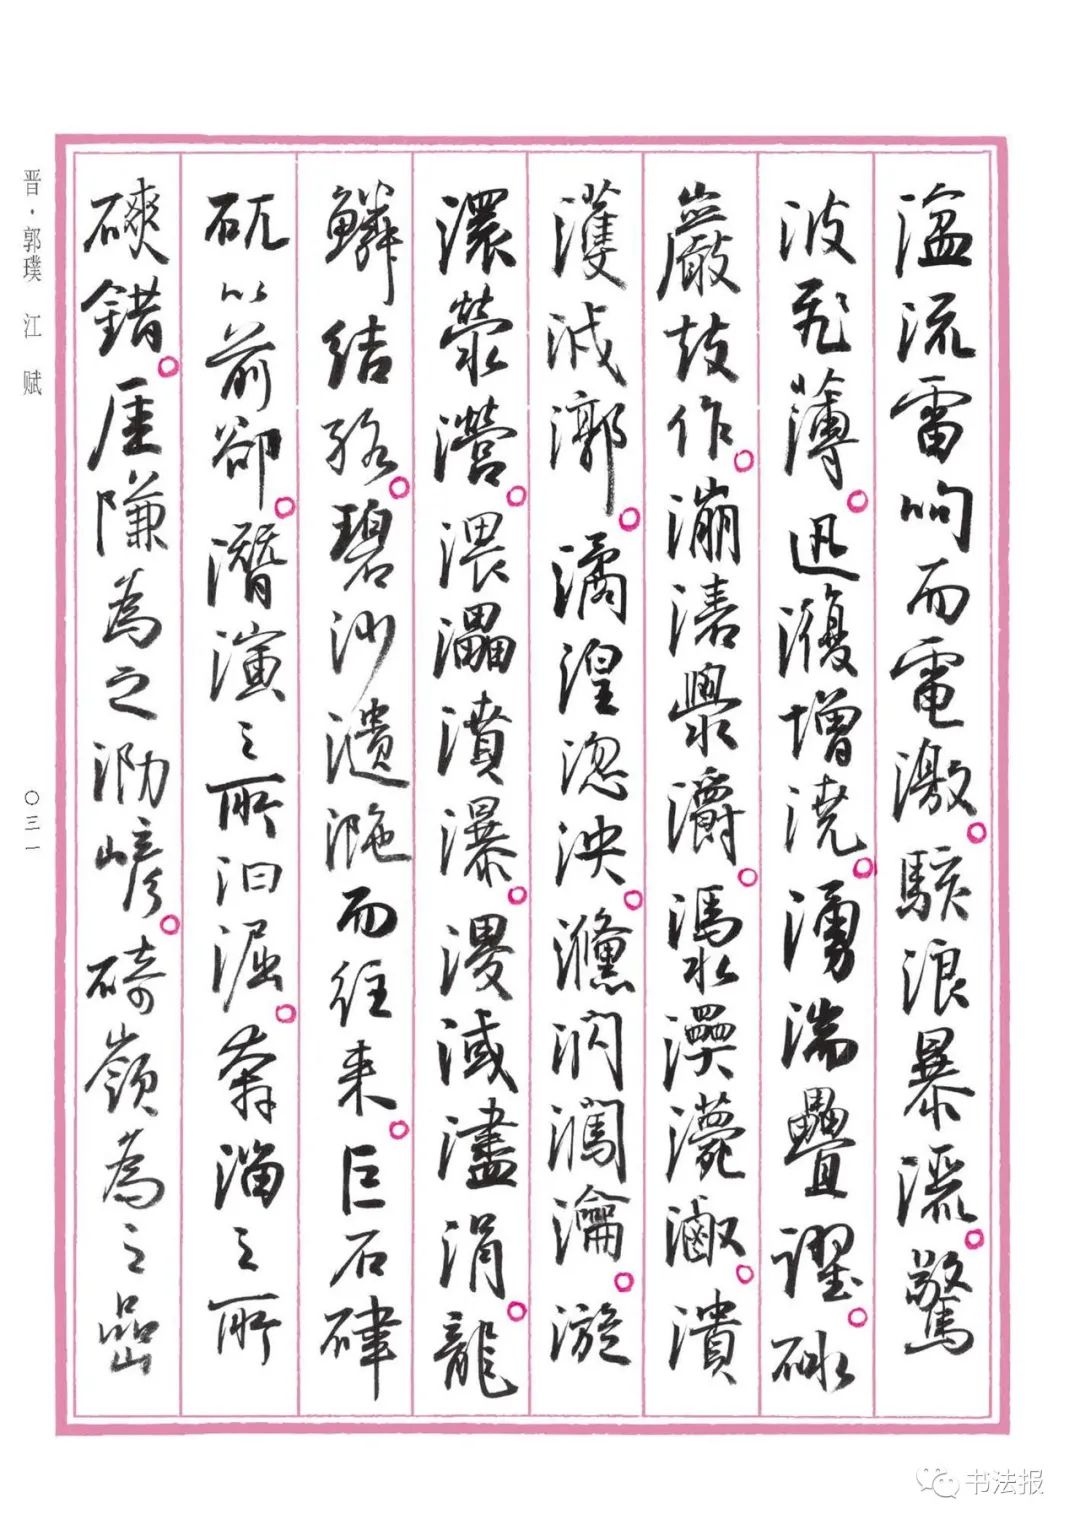 湓流雷呴而電激。駭浪暴灑。驚
波飛薄。迅澓增澆。湧湍疊躍。砯
巖鼓作。漰湱澩灂。潰
濩泧漷。潏湟淴泱。㴸瀹。漩
澴滎瀯。渨㵽濆瀑。溭淢濜溳。龍
鱗結絡。碧沙瀢㳌而往來。巨石硉
矹以前卻。潛演之所汩淈。奔溜之所
磢錯。厓隒為之泐嵃。碕嶺為之喦
晋·郭璞 江 赋
〇三一
书法报